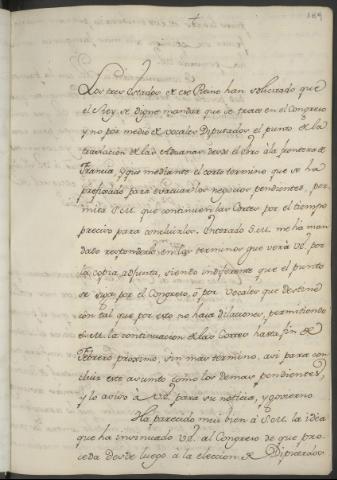 189
Los tres Estados de ese Reino han solicitado que
el Rey se digne mandar que se trate en el Congreso
y no por medio de vocales Diputados el punto de la
traslacion de las Aduanas desde el ebro a la frontera de
Francia, y que mediante el corto termino que se ha
prefixado para evacuar los negocios pendientes, per-
mita S.M. que continuen las Cortes por el tiempo
preciso para concluirlos. Enterado S.M. me ha man-
dado responderles en los terminos que verá Vd. por
la copia adjunta, siendo indiferente que el punto
se siga por el Congreso, ó por vocales que destine
con tal que por esto no haya dilaciones, permitiendo
S.M. la continuacion de las Cortes hasta fin de
Febrero proximo, sin mas termino, asi para con-
cluir este asunto como los demas pendientes,
y lo aviso á Vd. para su noticia, y govierno
Ha parecido mui bien á S.M. la idea
que ha insinuado Vd. al Congreso de que pro-
ceda desde luego á la eleccion de Diputados